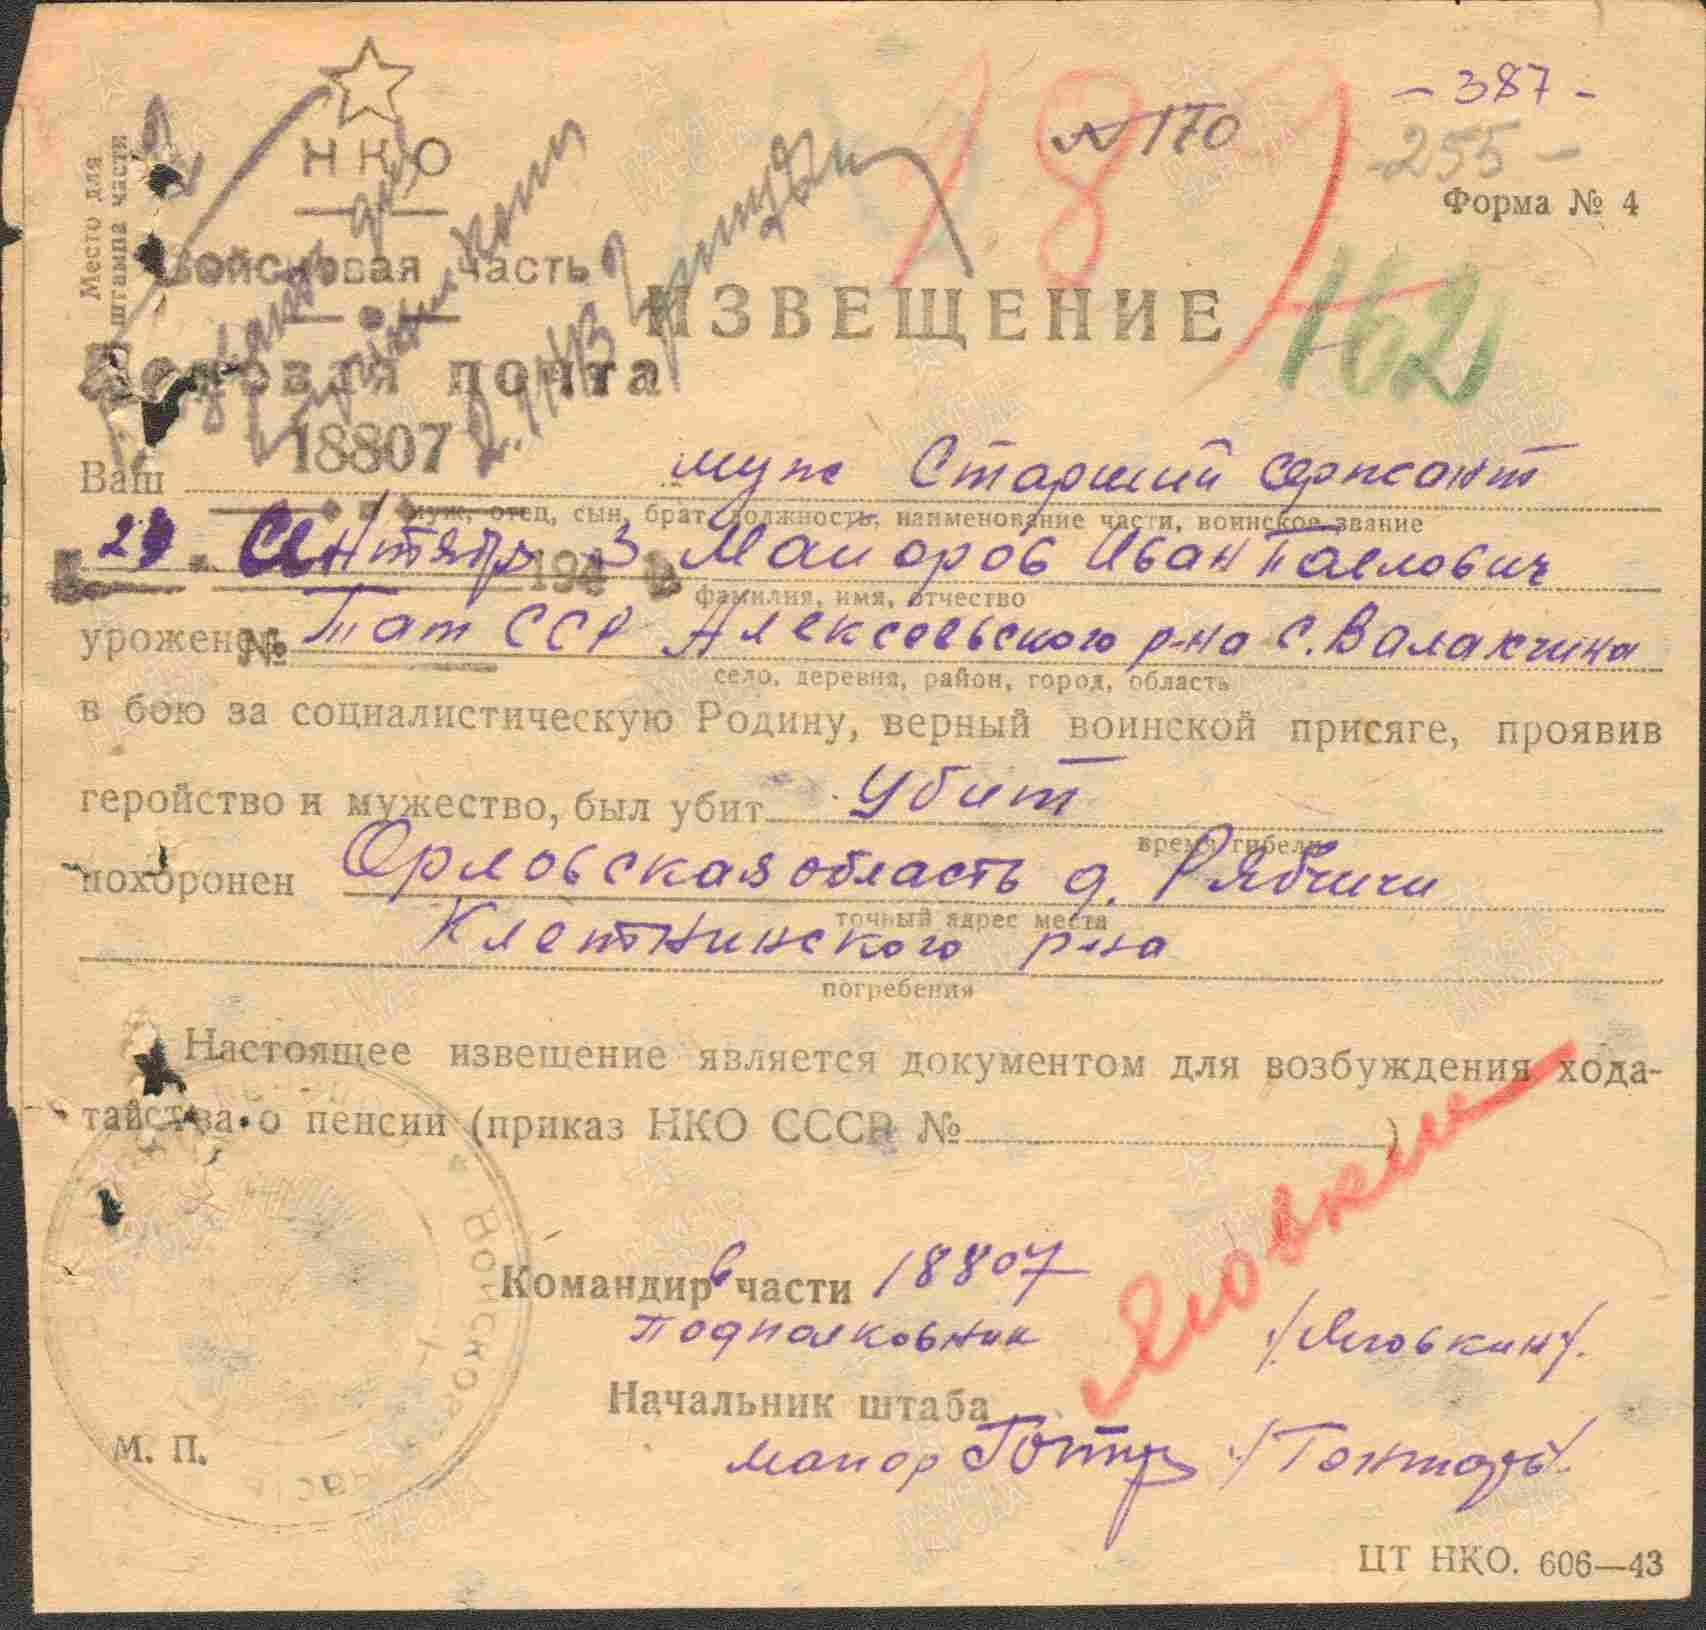 - 387 -
№ 170
- 255 -
187
Место для
штампа части
НКО
Форма № 4
Войсковая часть
ИЗВЕЩЕНИЕ
162
Полевая почта
2.11.43
18807
Ваш муж Старший сержант
муж, отец, сын, брат, должность, наименование части, воинское звание
Сентябр 194 3 Маиоров Иван Павлович
фамилия, имя, отчество
№
уроженец Тат ССР Алексеевского р-на с. Валахчина
село, деревня, район, город, область
в бою за социалистическую Родину, верный воинской присяге, проявив
геройство и мужество, был убит убит
время гибели
похоронен Орловская область д. Рябчичи
точный адрес места
Клетнинского р-на
погребения
Настоящее извещение является документом для возбуждения хода-
тайства о пенсии (приказ НКО СССР № )
Командир в части 18807
Подполковник /Яловкин/.
Начальник штаба
маиор
М. П.
Войсковая
ЦТ НКО. 606—43
ПАМЯТЬ НАРОДА